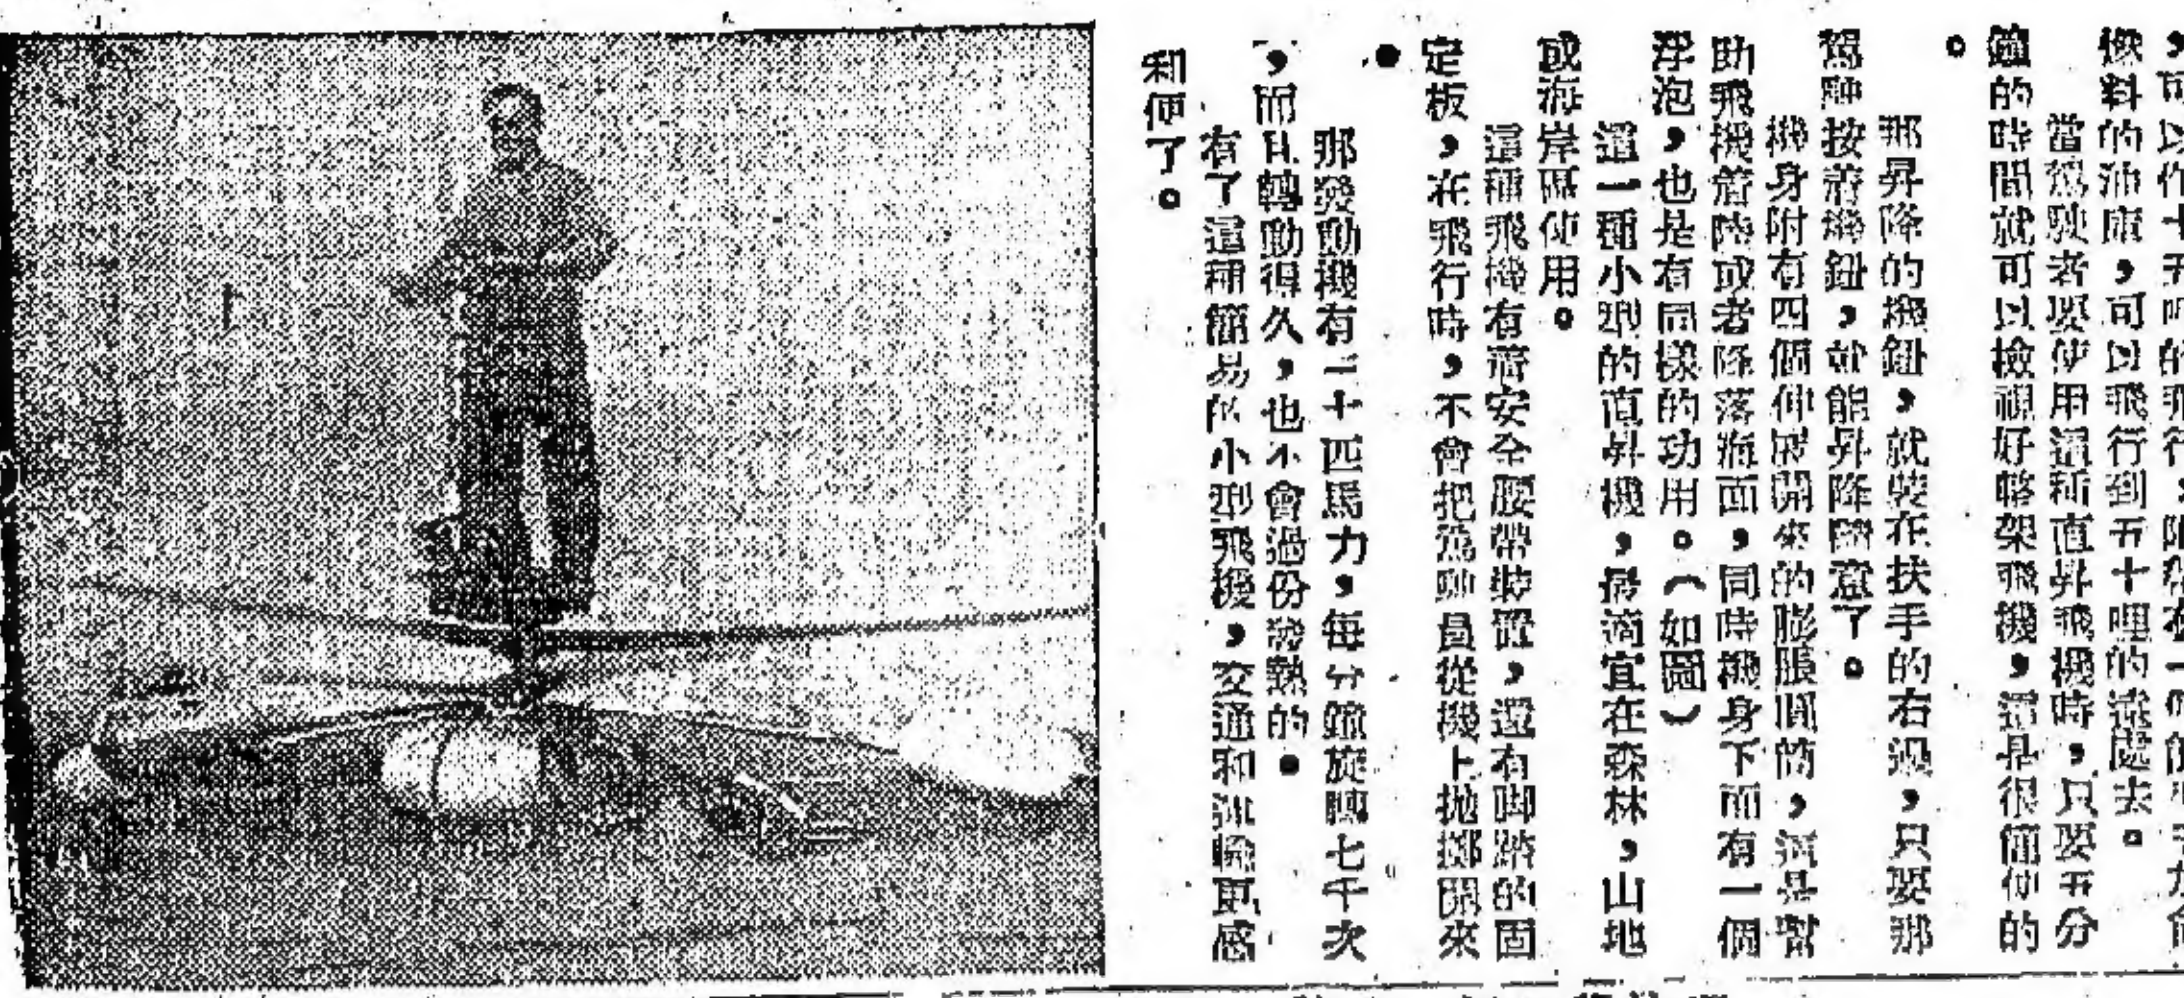 ，可以作十五哩的飛行，
燃料的油庫，可以飛行到五十哩的遠處去。
當駕駛者要使用這種直昇飛機時，只要五分
鐘的時間就可以檢視好整架飛機，這是很簡便的
。
那昇降的機鈕，就裝在扶手的右邊，只要那
駕駛按着機鈕，就能昇降隨意了。
機身附有四個伸展開來的膨脹圓筒，這是幫
助飛機着陸或者降落海面，同時機身下面有一個
浮泡，也是有同樣的功用。（如圖）
這一種小型的直昇機，最適宜在森林，山地
或海岸區使用。
這種飛機有着安全腰帶裝置，還有脚踏的固
定板，在飛行時，不會把駕駛員從機上拋擲開來
。
那發動機有二十匹馬力，每分鐘旋轉七千次
，而且轉動得久，也不會過份發熱的。
有了這種簡易的小型飛機，交通和運輸更感
利便了。